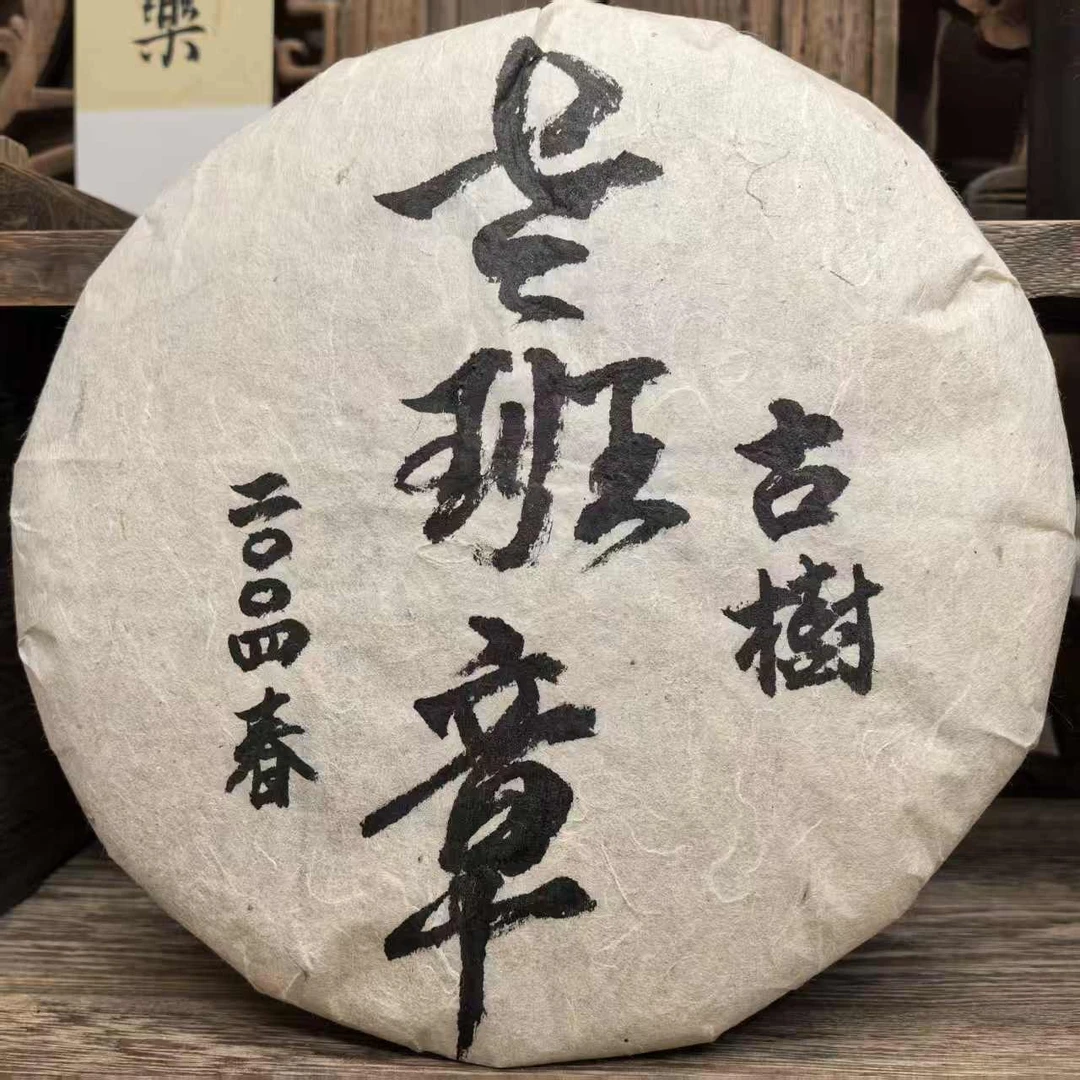 古樹
老班章
二〇〇四春
樂